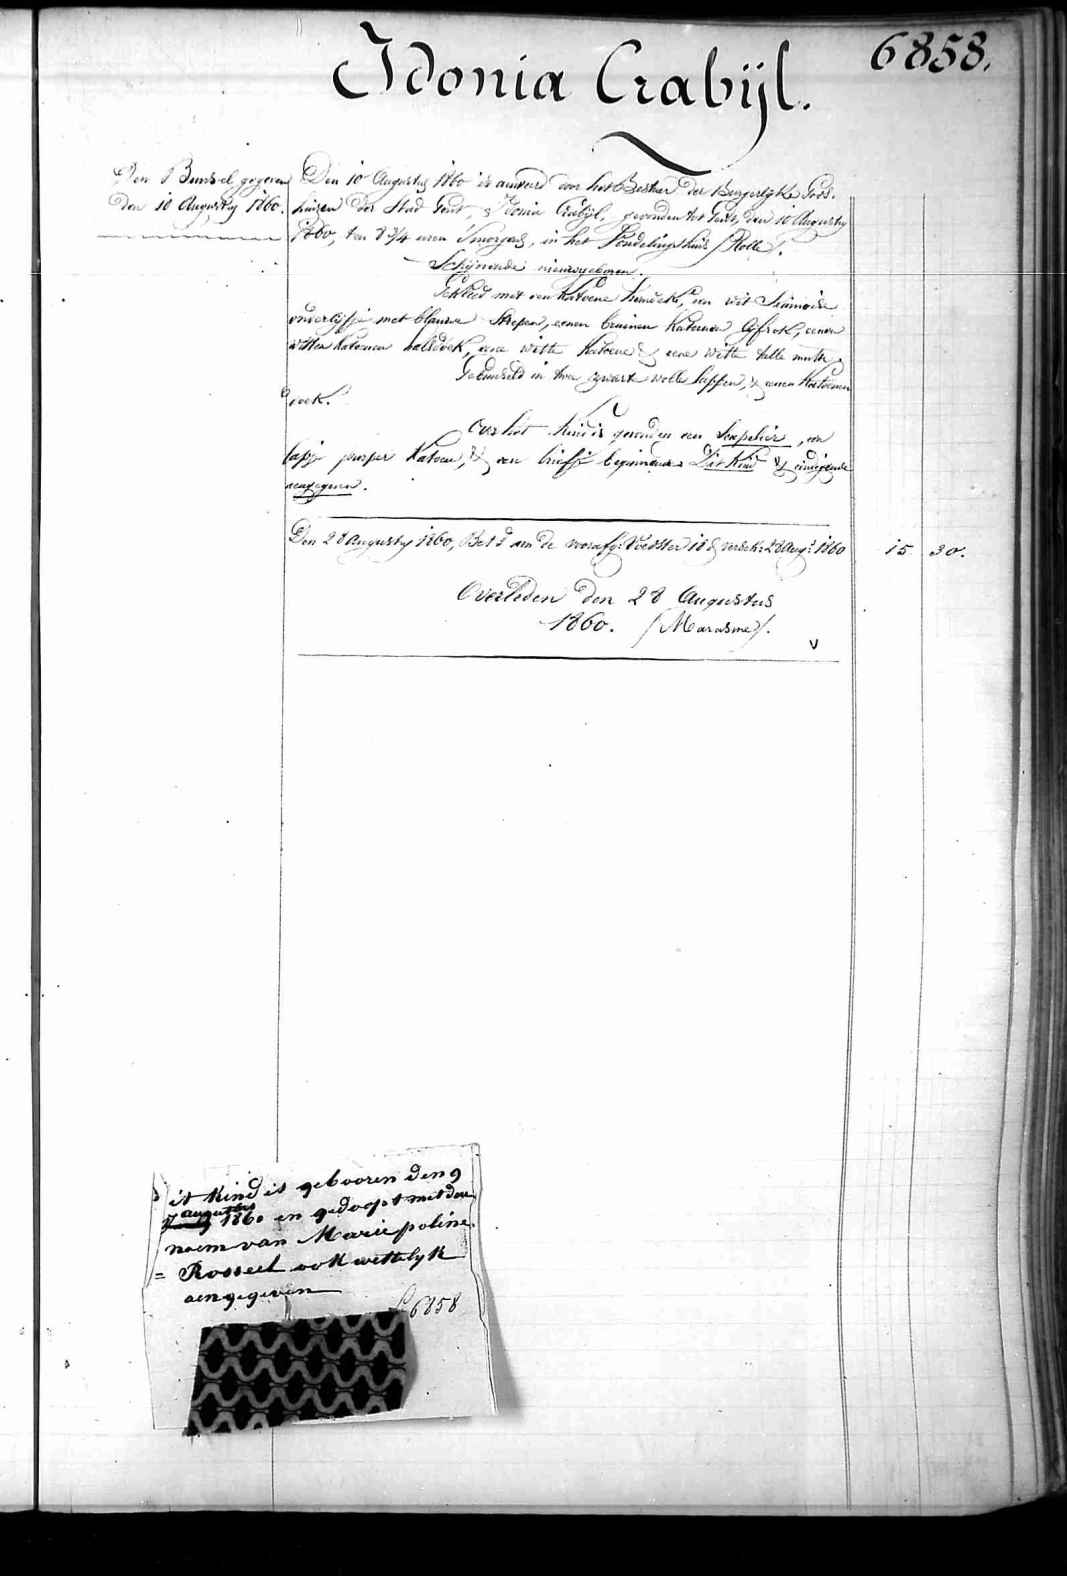 6858.
Idonia Crabijl.
Den Bundsel gegeven
den 10 Augusty 1860.
Den 10 Augusty 1860 is aenveerd door het Bestier der Burgerlyke Gods-
huizen der Stad Gent, Idonia Crabijl, gevonden tot Gent, den 10 Augusty
1860, ten 8 3/4 uren 's morgens, in het Vondelingshuis (Rolle).
Schijnende nieuwgeboren.
Gekleed met een katoene hemdeke, een wit Siamoise
onderlijfje met blauwe strepen, eenen bruinen katoenen lijfrok, eenen
witten katoenen halsdoek, eene witte katoene & eene witte tulle muts.
Gebunseld in twee zwarte wolle lappen, & eenen katoenen
doek.
Over het kind is gevonden een Scapelier, een
lapje purper katoen, & een briefje beginnende Dit Kind & eindigende
aengegeven.
Den 28 Augusty 1860, Bet.d aen de voedster 18 d. 28 Aug.t 1860 15 30.
Overleden den 28 Augustus
1860. (Marasme).
Dit kind is gebooren den 9
augustus
1860 en gedoopt met den
naem van Marie poline
= Rosseel ook wettelyk
aengegeven
6858